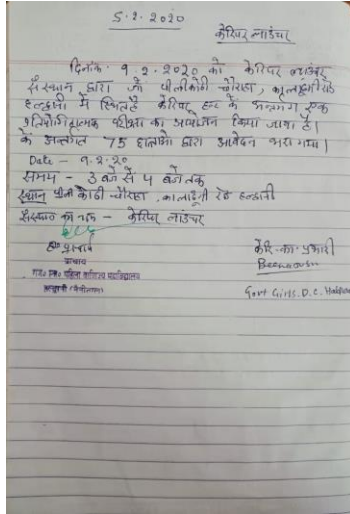 5.2.2020
केरियर लाउंचर
दिनांक 9.2.2020 को केरियर लाउंचर
संस्थान द्वारा जो पीलीकोठी चौराहा, कालाढूंगी रोड
हल्द्वानी में स्थित है केरियर हन्ट के अन्तर्गत एक
प्रतियोगीतात्मक परीक्षा का आयोजन किया जाना है।
के अन्तर्गत 75 छात्राओं द्वारा आवेदन भरा गया।
Date - 9.2.20
समय - 3 बजे से 4 बजे तक
स्थान पीली कोठी चौराहा, कालाढूंगी रोड हल्द्वानी
संस्थान का नाम - केरियर लाउंचर
ह० प्राचार्य
प्राचार्य
महिला महाविद्यालय
हल्द्वानी (नैनीताल)
केरि. का. प्रभारी
Govt Girls. D.C. Haldwani